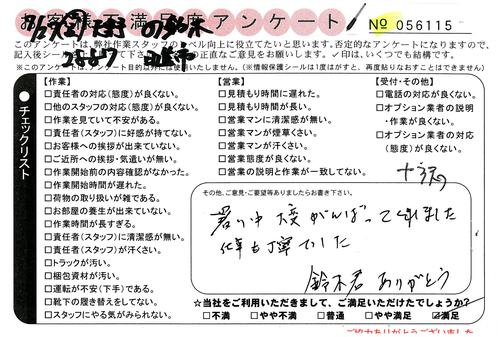 お客様満足度アンケート
№ 056115
このアンケートは、弊社作業スタッフのレベル向上に役立てたいと思います。否定的なアンケートになりますので、
記入後シール
の正直なご意見をお書き下さい。✓印は、いくつでも結構です。
(※このアンケートは、アンケート目的以外には使いません。(※情報保護シールは1度がすと、再度貼りなおすことはできません)
チェックリスト
【作業】
□責任者の対応(態度)が良くない。
□他のスタッフの対応(態度)が良くない。
□作業を見ていて不安がある。
□責任者(スタッフ)に好感が持てない。
□お客様への挨拶が出来ていない。
□ご近所への挨拶・気遣いが無い。
□作業開始前の内容確認がなかった。
□作業開始時間が遅れた。
□荷物の取り扱いが雑である。
□お部屋の養生が出来ていない。
□作業時間が長すぎる。
□責任者(スタッフ)に清潔感が無い。
□責任者(スタッフ)が汗くさい。
□トラックが汚い。
□梱包資材が汚い。
□運転が不安(下手)である。
□靴下の履き替えをしてない。
□スタッフにやる気がみられない。
【営業】
□見積もり時間に遅れた。
□見積もり時間が長い。
□営業マンに清潔感が無い。
□営業マンが煙草くさい。
□営業マンが汗くさい。
□営業態度が良くない。
□営業の説明と作業が一致してない。
【受付・その他】
□電話の対応が良くない。
□オプション業者の説明
・作業が良くない。
□オプション業者の対応
(態度)が良くない。
その他、ご意見・ご要望等ありましたらお書き下さい。
暑い中 大変がんばってくれました
仕事も丁寧でした
鈴木君 ありがとう
☆当社をご利用いただきまして、ご満足いただけたでしょうか?
□不満 □やや不満 □普通 □やや満足 ☑満足
ご協力ありがとうございました